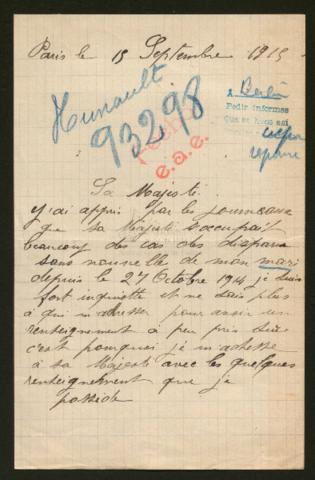 Paris le 15 Septembre 1915
Hunault
93298
e.a.e.
a Berlin
Pedir informes
Sa Majesté
y'ai appris par les journeaux
que sa Majesté s'occupait
beaucoup des cas des disparus
sans nouvelle de mon mari
depuis le 27 Octobre 1914 je suis
fort inquiette et ne sais plus
à qui m'adresser pour avoir un
renseignement à peu près sûre
c'est pourquoi je m'adresse
à sa Majesté avec les quelques
renseignement que je
possède